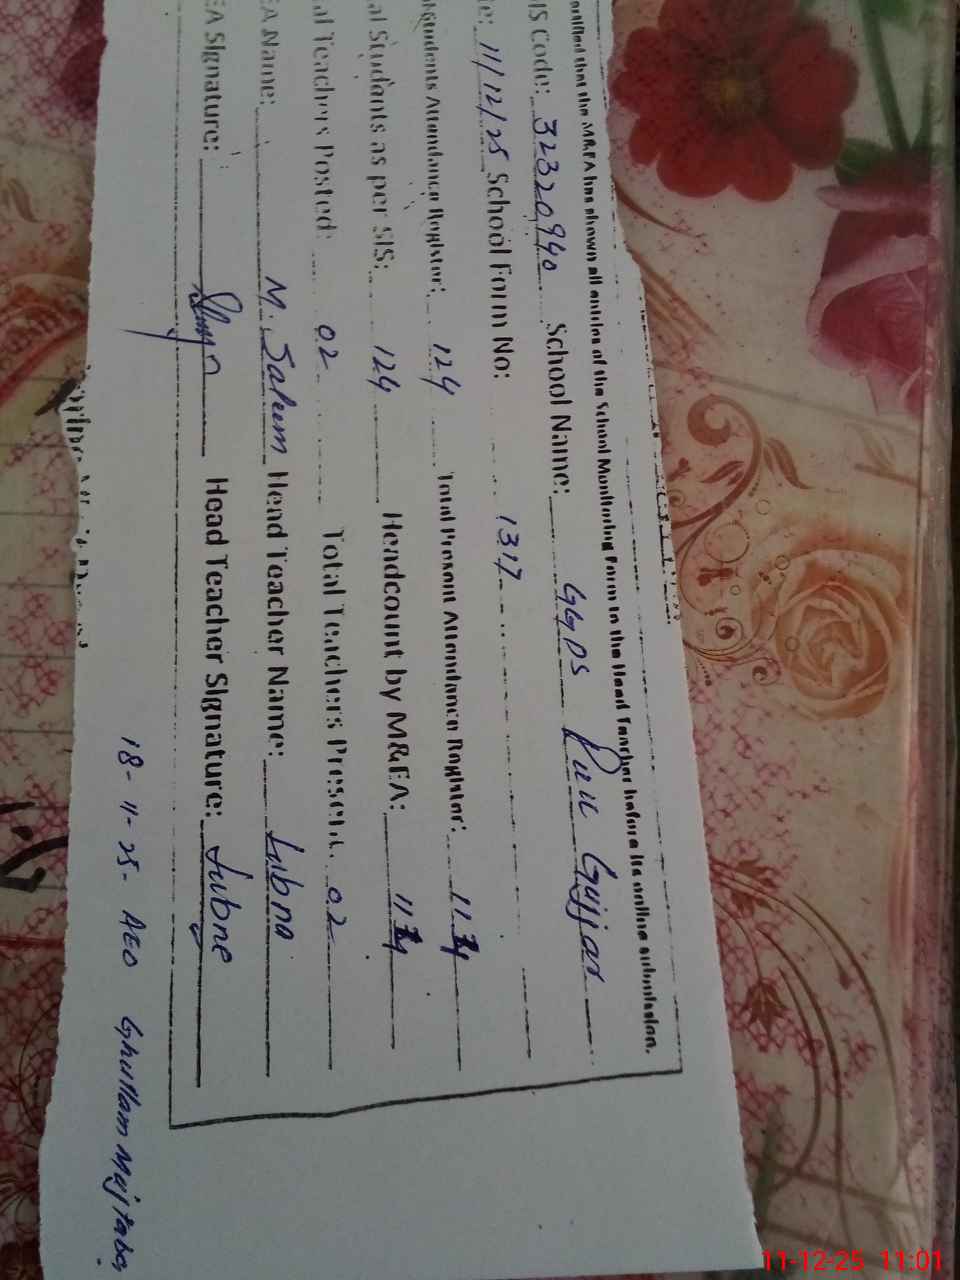 ertified that the M&EA has shown all entries of the School Monitoring Form to the Head Teacher before its online submission.
IS Code: 32320940 School Name: GGPS Pull Gujjar
e: 11/12/25 School Form No: 1317
Students Attendance Register: 124 Total Present Attendance Register: 114
al Students as per SIS: 124 Headcount by M&EA: 114
al Teachers Posted: 02 Total Teachers Present: 02
EA Name: M. Salum Head Teacher Name: Lubna
EA Signature: Head Teacher Signature: Lubne
18-11-25- AEO Ghullam Mujtaba
11-12-25 11:01